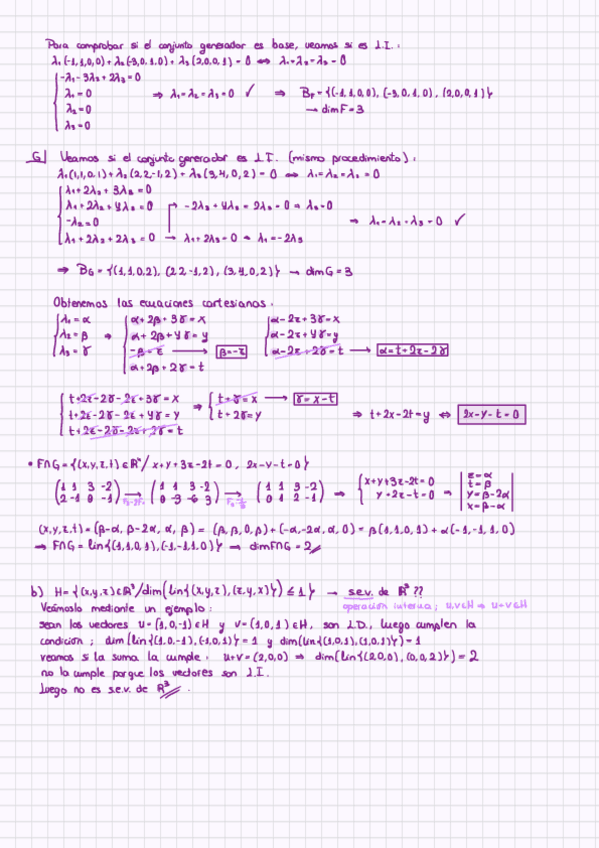 Para comprobar si el conjunto generador es base, veamos si es L.I.:
λ₁(-1,1,0,0) + λ₂(-3,0,1,0) + λ₃(2,0,0,1) = 0 ⇔ λ₁=λ₂=λ₃=0
-λ₁-3λ₂+2λ₃=0
λ₁=0
λ₂=0 ⇒ λ₁=λ₂=λ₃=0 ✓ ⇒ B_F = {(-1,1,0,0), (-3,0,1,0), (2,0,0,1)}
λ₃=0 → dimF=3
G| Veamos si el conjunto generador es L.I. (mismo procedimiento):
λ₁(1,1,0,1)+λ₂(2,2,-1,2)+λ₃(3,4,0,2)=0 ⇔ λ₁=λ₂=λ₃=0
λ₁+2λ₂+3λ₃=0
λ₁+2λ₂+4λ₃=0 → -2λ₃+4λ₃=2λ₃=0 ⇒ λ₃=0
-λ₂=0 ⇒ λ₁=λ₂=λ₃=0 ✓
λ₁+2λ₂+2λ₃=0 → λ₁+2λ₃=0 ⇒ λ₁=-2λ₃
⇒ B_G={(1,1,0,2), (2,2,-1,2), (3,4,0,2)} → dimG=3
Obtenemos las ecuaciones cartesianas.
λ₁=α α+2β+3γ=x α-2z+3γ=x
λ₂=β ⇒ α+2β+4γ=y α-2z+4γ=y
λ₃=γ -β=z → β=-z α-2z+2γ=t → α=t+2z-2γ
α+2β+2γ=t
t+2z-2γ-2z+3γ=x t+γ=x → γ=x-t
t+2z-2γ-2z+4γ=y ⇒ t+2γ=y ⇒ t+2x-2t=y ⇔ 2x-y-t=0
t+2z-2γ-2z+2γ=t
• F∩G={(x,y,z,t)∈ℝ⁴/ x+y+3z-2t=0, 2x-y-t=0}
(1 1 3 -2) (1 1 3 -2) (1 1 3 -2) x+y+3z-2t=0 z=α
(2 -1 0 -1) → (0 -3 -6 3) → (0 1 2 -1) ⇒ y+2z-t=0 ⇒ t=β
y=β-2α
x=β-α
(x,y,z,t)=(β-α, β-2α, α, β) = (β,β,0,β)+(-α,-2α,α,0)=β(1,1,0,1)+α(-1,-1,1,0)
⇒ F∩G=lin{(1,1,0,1),(-1,-1,1,0)} → dimF∩G=2
b) H={(x,y,z)∈ℝ³/dim(lin{(x,y,z),(z,y,x)})≤1} → s.e.v. de ℝ³??
operación interna; u,v∈H ⇒ u+v∈H
Veámoslo mediante un ejemplo:
sean los vectores u=(1,0,-1)∈H y v=(1,0,1)∈H, son L.D., luego cumplen la
condición; dim(lin{(1,0,-1),(-1,0,1)})=1 y dim(lin{(1,0,1),(1,0,1)})=1
veamos si la suma la cumple: u+v=(2,0,0) ⇒ dim(lin{(2,0,0),(0,0,2)})=2
no la cumple porque los vectores son L.I.
Luego no es s.e.v. de ℝ³.